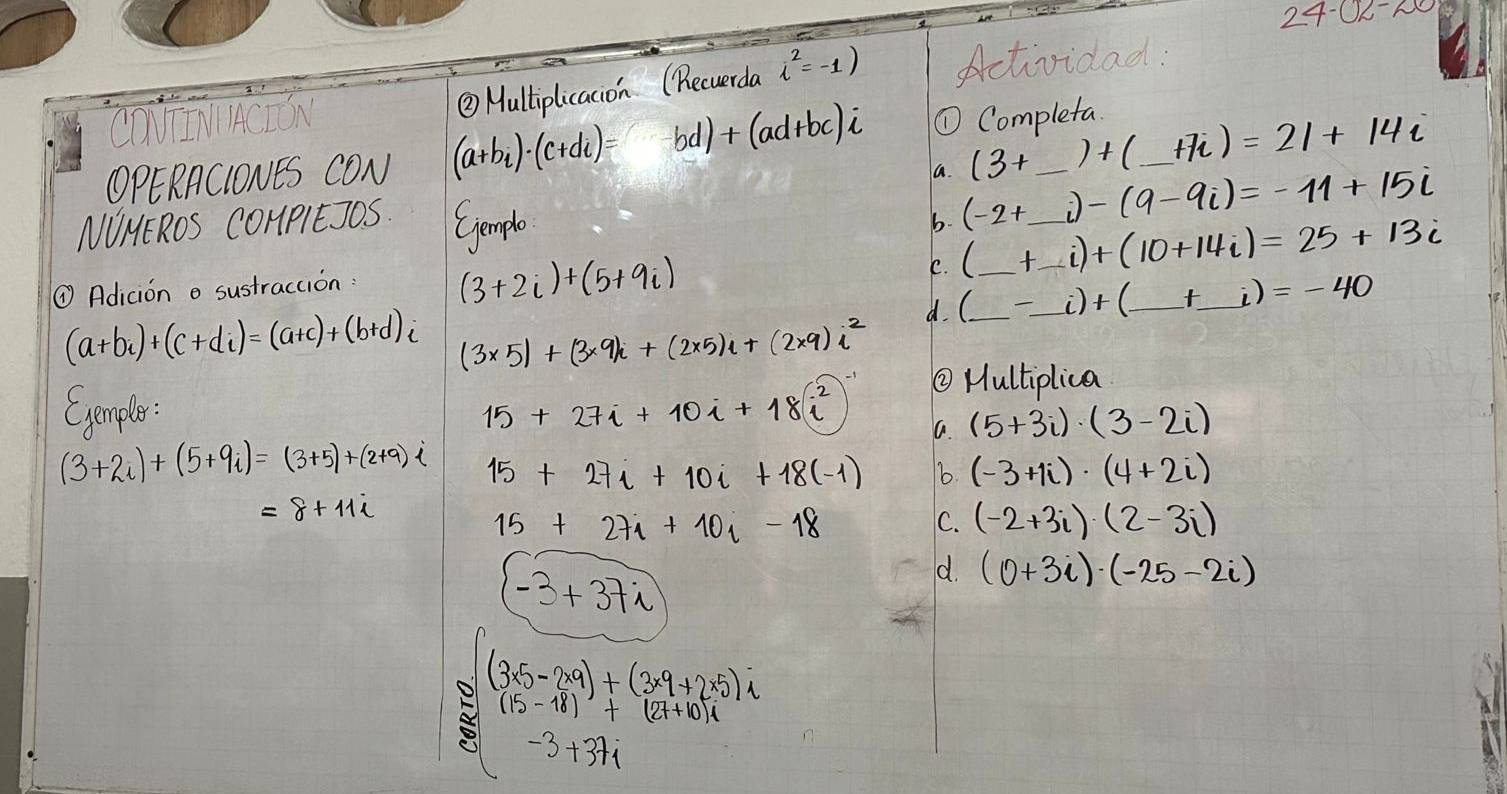 CONTINUACIÓN
OPERACIONES CON
NÚMEROS COMPLEJOS.
① Adición o sustracción:
(a+bi)+(c+di)=(a+c)+(b+d)i
Ejemplo:
(3+2i)+(5+9i)= (3+5)+(2+9)i
= 8+11i
② Multiplicación (Recuerda i²=-1)
(a+bi)·(c+di)=( -bd)+(ad+bc)i
Ejemplo:
(3+2i)+(5+9i)
(3×5) + (3×9)i + (2×5)i + (2×9)i²
15 + 27i + 10i + 18i² -1
15 + 27i + 10i + 18(-1)
15 + 27i + 10i - 18
-3+37i
CORTO.
(3×5-2×9) + (3×9+2×5)i
(15-18) + (27+10)i
-3+37i
24-02-20
Actividad:
① Completa.
a. (3+__)+(__+7i) = 21+14i
b. (-2+__i)-(9-9i)= -11+15i
c. (__+__i)+(10+14i)= 25+13i
d. (__-__i)+(__+__i)= -40
② Multiplica
a. (5+3i)·(3-2i)
b. (-3+1i)·(4+2i)
c. (-2+3i)·(2-3i)
d. (0+3i)·(-25-2i)